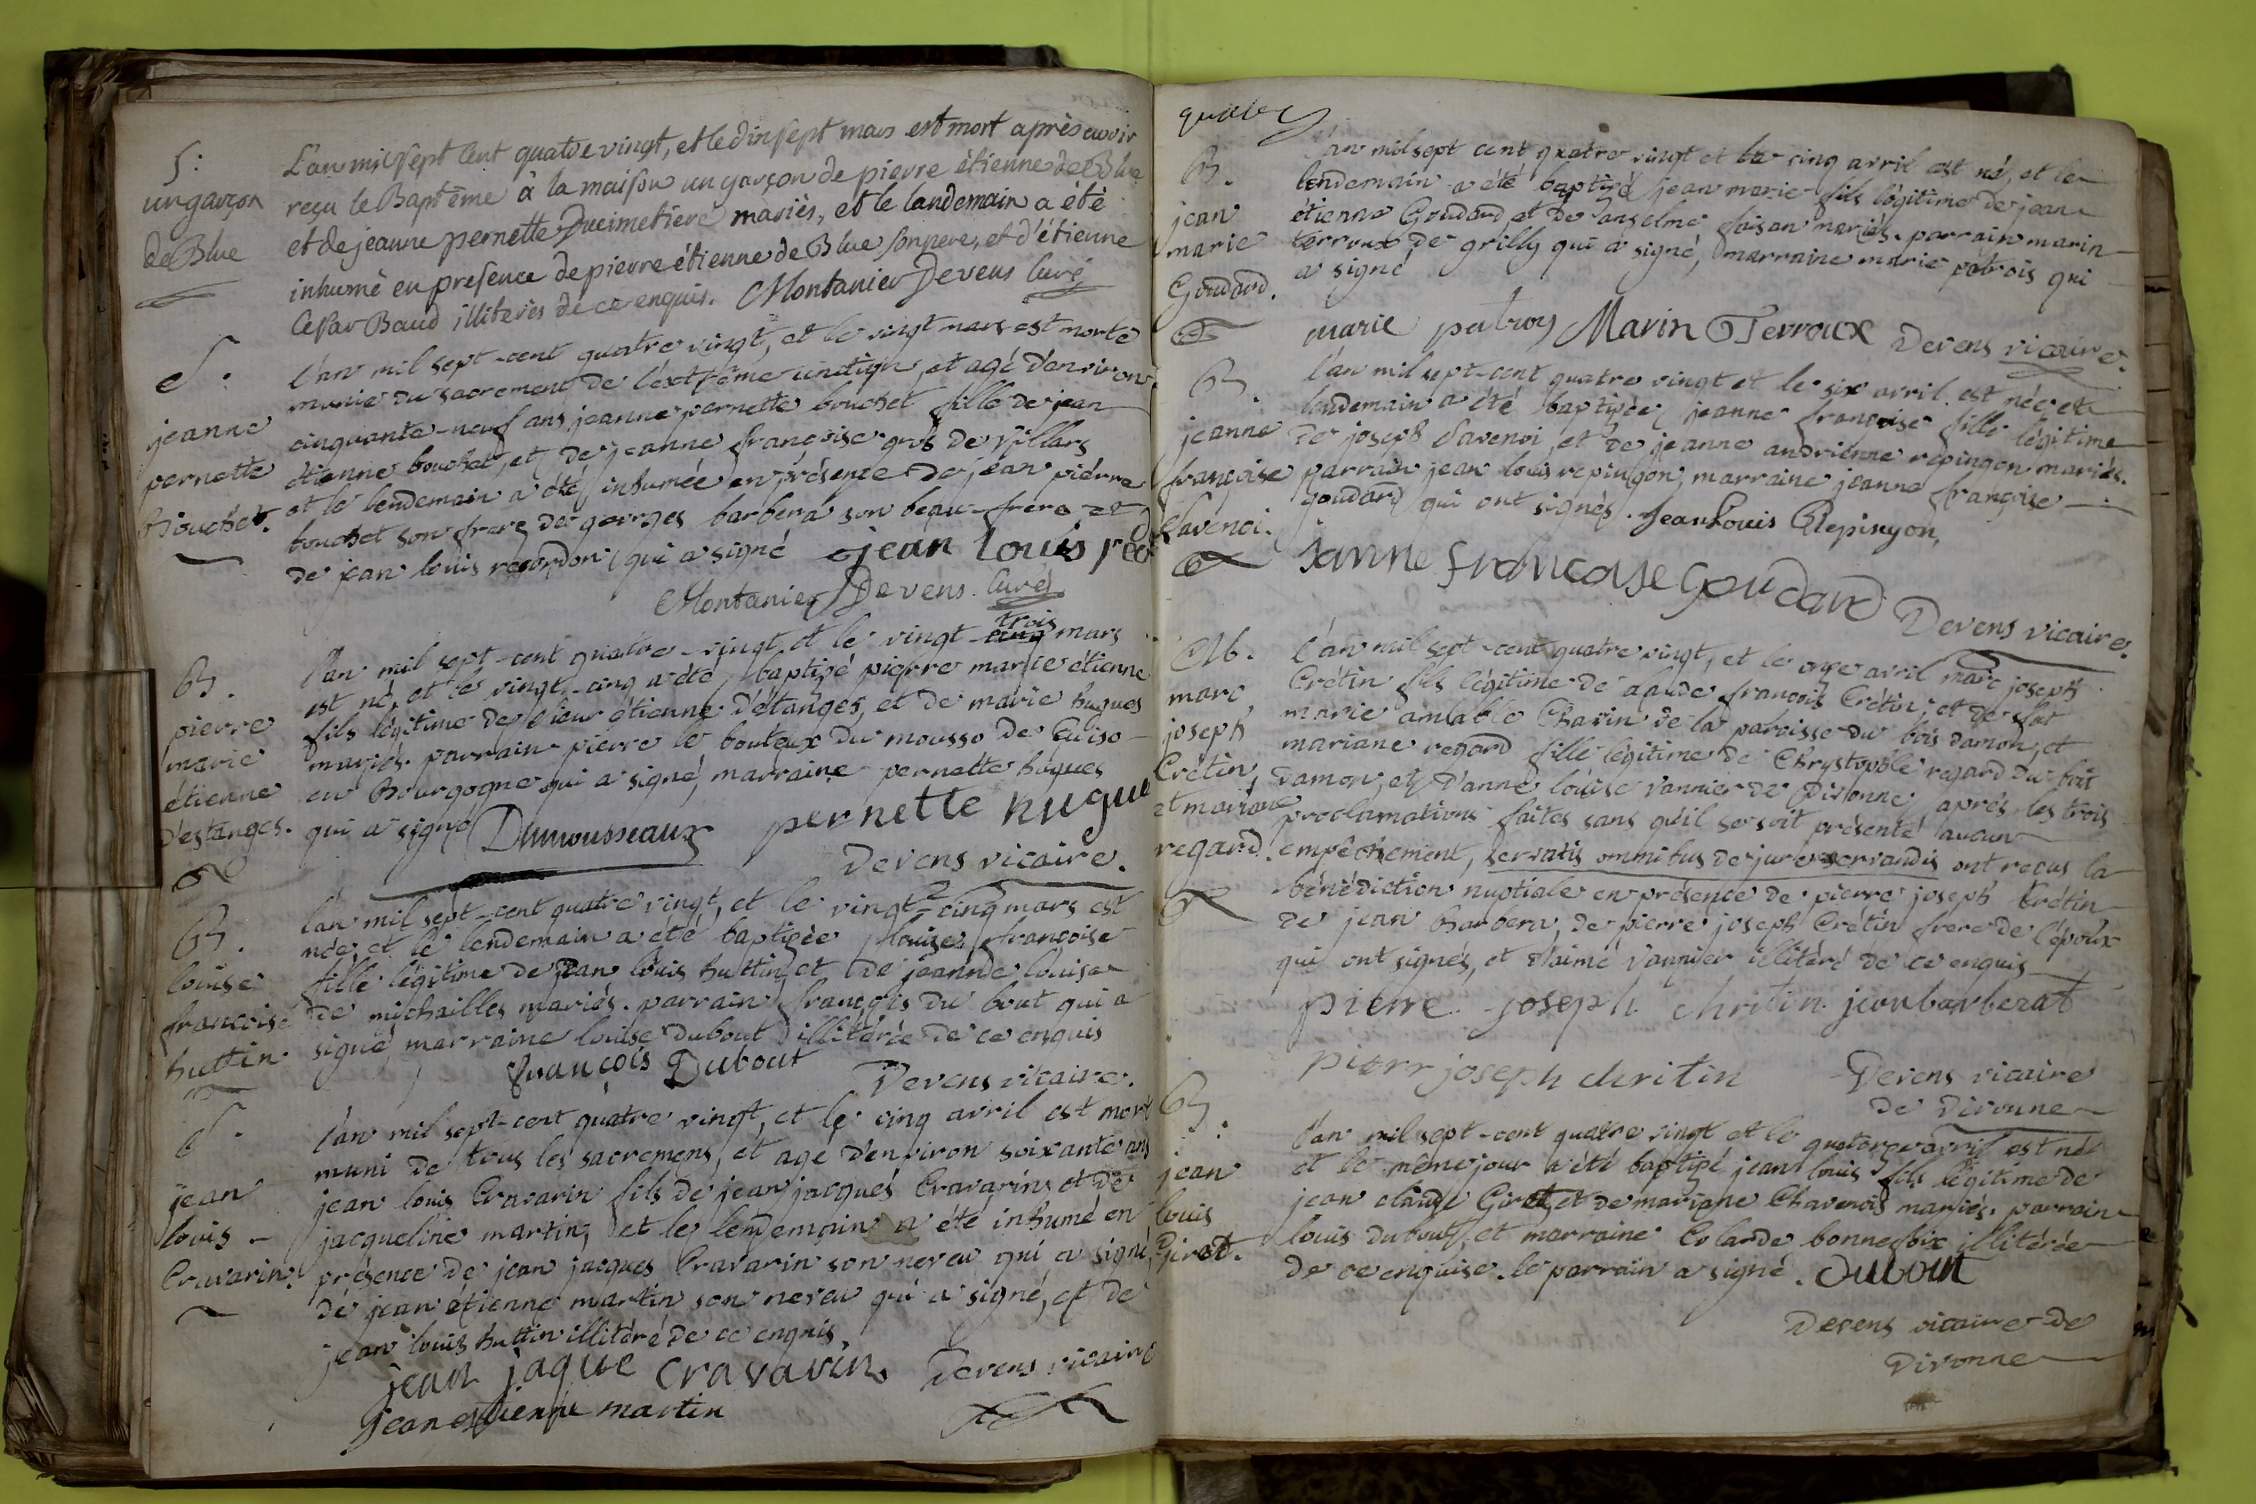 S:
un garçon
de Blue
L'an mil sept cent quatre vingt, et le dinsept mars est mort après avoir
reçu le Baptême à la maison un garçon de pierre étienne de Blue
et de jeanne pernette Ducimetiere mariés, et le landemain a été
inhumé en presence de pierre étienne de Blue son pere, et d'étienne
Cesar Baud illiterés de ce enquis. Montanier Devens Curé
S.
jeanne
pernette
Bouchet.
l'an mil sept-cent quatre vingt, et le vingt mars est morte
munie du sacrement de l'extrême onction, et agé d'environ
cinquante-neuf ans jeanne pernette bouchet fille de jean
étienne bouchet, et de jeanne françoise gros de Villars
et le lendemain a été inhumée en présence de jean piérre
bouchet son frere de georges barbera son beau-frere, et
de jean louis recordon qui a signé jean louis
Montanier Devens Curé
B.
pierre
marie
étienne
d'estanges.
l'an mil sept-cent quatre-vingt, et le vingt-trois mars
est né, et le vingt-cinq a été baptizé pierre marie étienne
fils légitime de sieur étienne d'étanges, et de marie hugues
mariés. parrain pierre le bouteux du mousso de
en Bourgogne qui a signé, marraine pernette hugues
qui a signé Dumousseaux pernette hugue
Devens vicaire.
B.
louise
francoise
huttin.
l'an mil sept-cent quatre vingt, et le vingt-cinq mars est
née, et le lendemain a eté baptizée louise françoise
fille légitime de jean louis huttin, et de jeanne louise
de michailles mariés. parrain françois du bout qui a
signé, marraine louise dubout illitérée de ce enquis
François Dubout
Devens vicaire.
S.
jean
louis
Cravarin.
l'an mil sept-cent quatre vingt, et le cinq avril est mort
muni de tous les sacremens, et agé d'environ soixante ans
jean louis Cravarin fils de jean jacques Cravarin, et de
jacqueline martin, et le lendemain a été inhumé en
présence de jean jacques Cravarin son neveu qui a signé,
de jean étienne martin son neveu qui a signé, et de
jean louis huttin illitéré de ce enquis.
jean jaque cravarin. Devens vicaire
jean estienne martin
B.
jean
marie
Goudard.
l'an mil sept cent quatre vingt et le cinq avril est né, et le
lendemain a été baptizé jean marie fils légitime de jean
étienne Goudard et de anselme faisan mariés. parrain marin
terroux de grilly qui a signé, marraine marie patrois qui
a signé
marie patroy Marin Terroux Devens vicaire.
B.
jeanne
françoise
Savenoi.
l'an mil sept-cent quatre vingt et le six avril est née, et le
lendemain a été baptizée jeanne françoise fille légitime
de joseph Savenoi, et de jeanne andriénne repingon mariés.
parrain jean louis repingon, marraine jeanne françoise
goudard qui ont signés. Jean Louis Repingon,
janne francoise Goudard Devens vicaire.
M.
marc
joseph
Crétin,
et mariane
regard.
l'an mil sept-cent quatre vingt, et le onze avril marc joseph
Crétin fils légitime de claude françois Crétin, et de
marie amable Chavin de la paroisse du bois damon, et
mariane regard fille légitime de Chrystophle regard du bois
damon, et d'anne louise vannier de Divonne, aprés les trois
proclamations faites sans qu'il se soit présenté aucun
empêchement, servatis omnibus de jure servandis ont reçus la
bénédiction nuptiale en présence de pierre joseph Crétin
de jean barbera, de pierre joseph Crétin frere de l'époux
qui ont signés, et d'aimé vannier illitéré de ce enquis
pierre joseph chritin jean barberat
pierr joseph chritin Devens vicaire
de Divonne
B.
jean
louis
Girot.
l'an mil sept-cent quatre vingt et le quatorze avril est né
et le même jour a été baptizé jean louis fils légitime de
jean claude Girot et de mariane Chavenois mariés. parrain
louis dubout, et marraine Colande bonnefoix illitérée
de ce enquise. le parrain a signé. Dubout
Devens vicaire de
Divonne